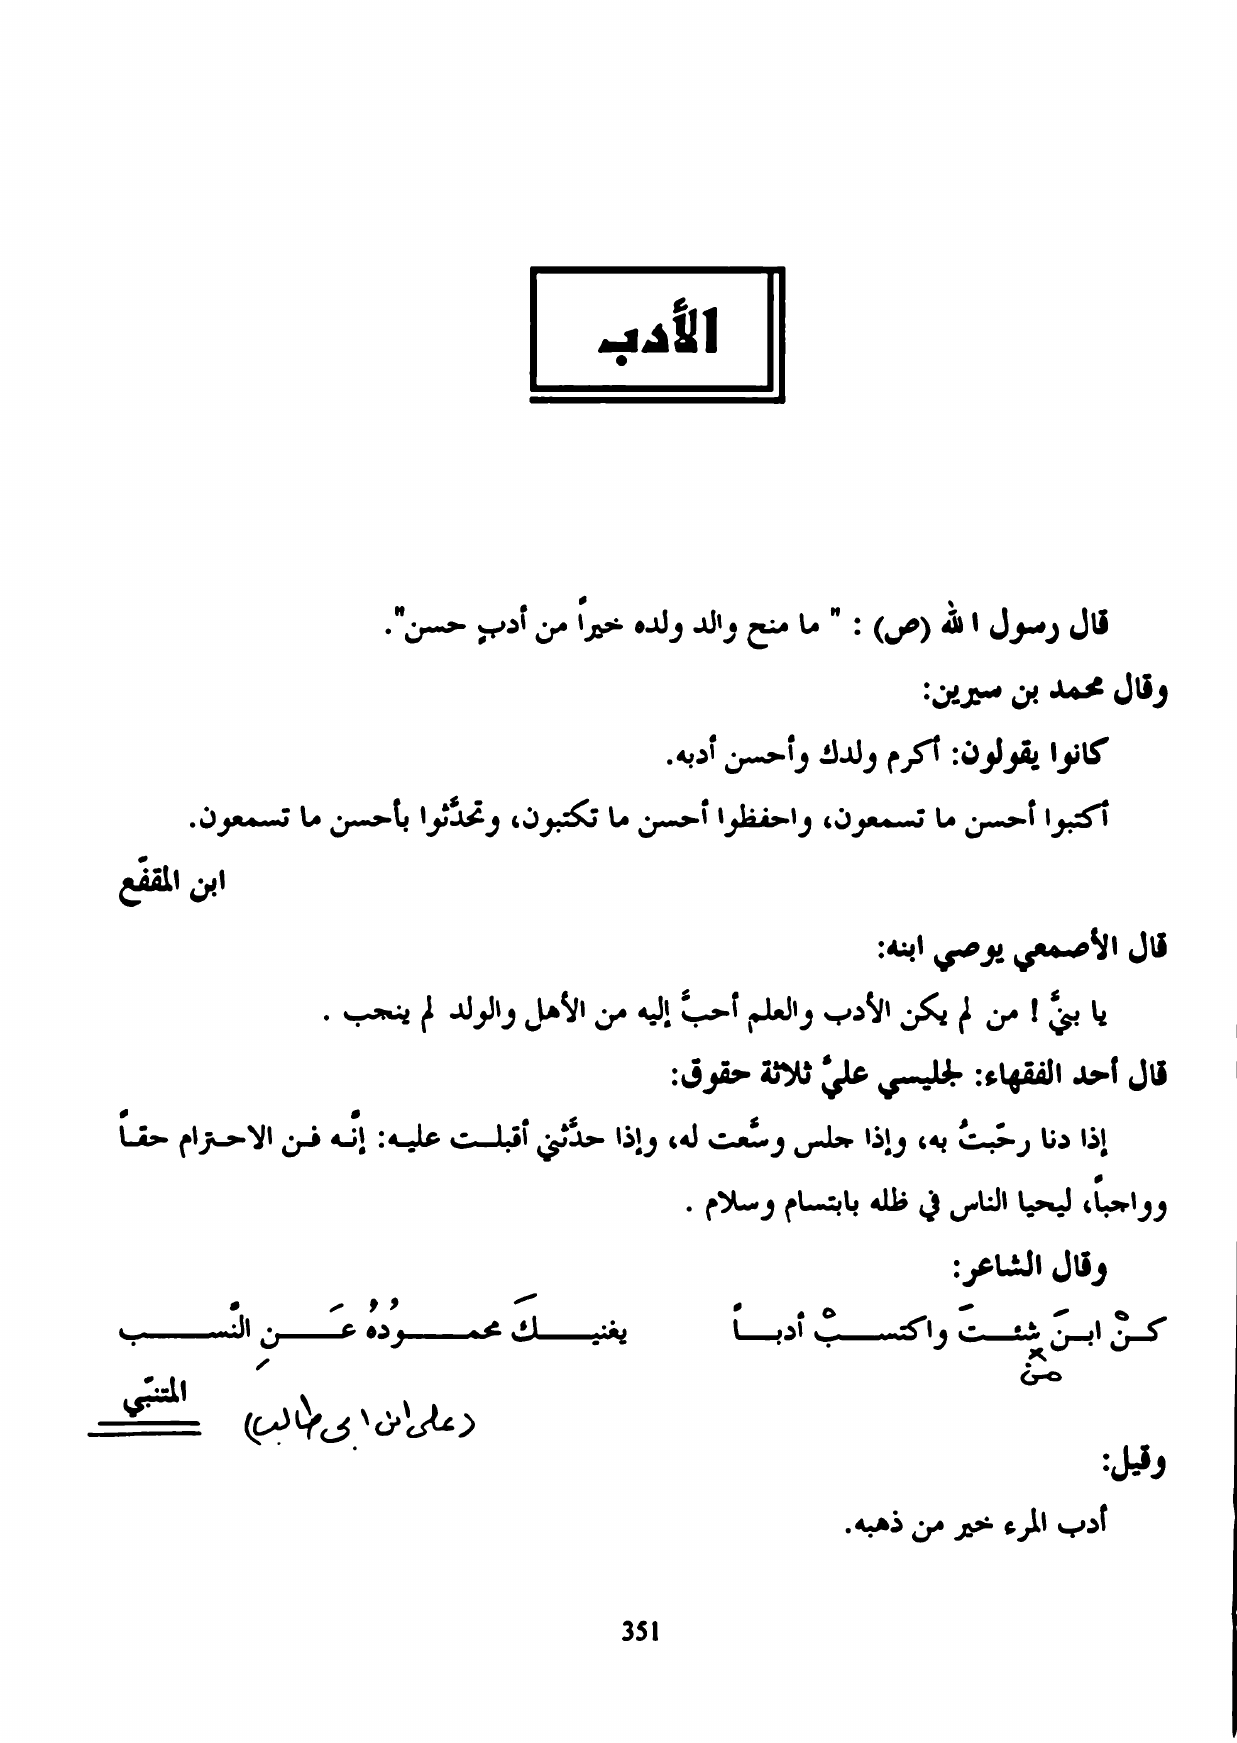 الأدب
قال رسول الله (ص) : " ما منح والد ولده خيراً من أدبٍ حسن".
وقال محمد بن سيرين:
كانوا يقولون: أكرم ولدك وأحسن أدبه.
أكتبوا أحسن ما تسمعون، واحفظوا أحسن ما تكتبون، وتحدَّثوا بأحسن ما تسمعون.
ابن المقفّع
قال الأصمعي يوصي ابنه:
يا بنيَّ ! من لم يكن الأدب والعلم أحبَّ إليه من الأهل والولد لم ينجب .
قال أحد الفقهاء: لجليسي عليَّ ثلاثة حقوق:
إذا دنا رحَّبتُ به، وإذا جلس وسَّعت له، وإذا حدَّثني أقبلت عليه: إنّه فن الاحترام حقاً
وواجباً، ليحيا الناس في ظله بابتسام وسلام .
وقال الشاعر:
كنْ ابنَ شئتَ واكتسبْ أدباً يغنيكَ محمودُهُ عَنِ النّسب
من
المتنبّي
(على ابن ابى طالب)
وقيل:
أدب المرء خير من ذهبه.
351